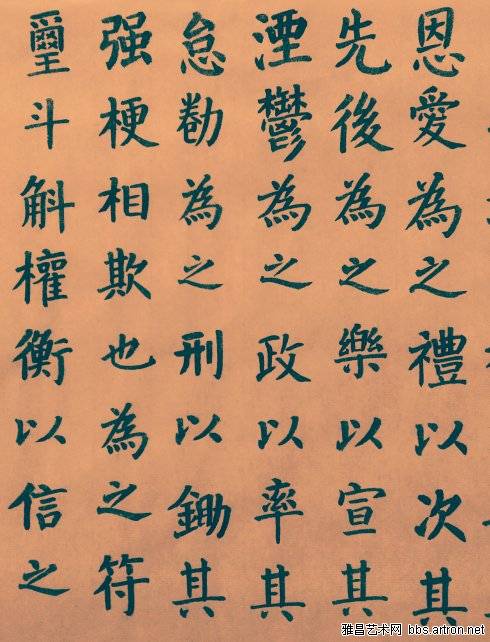 恩愛為之禮以次其
先後為之樂以宣其
湮鬱為之政以率其
怠勌為之刑以鋤其
强梗相欺也為之符
璽斗斛權衡以信之
雅昌艺术网 bbs.artron.net